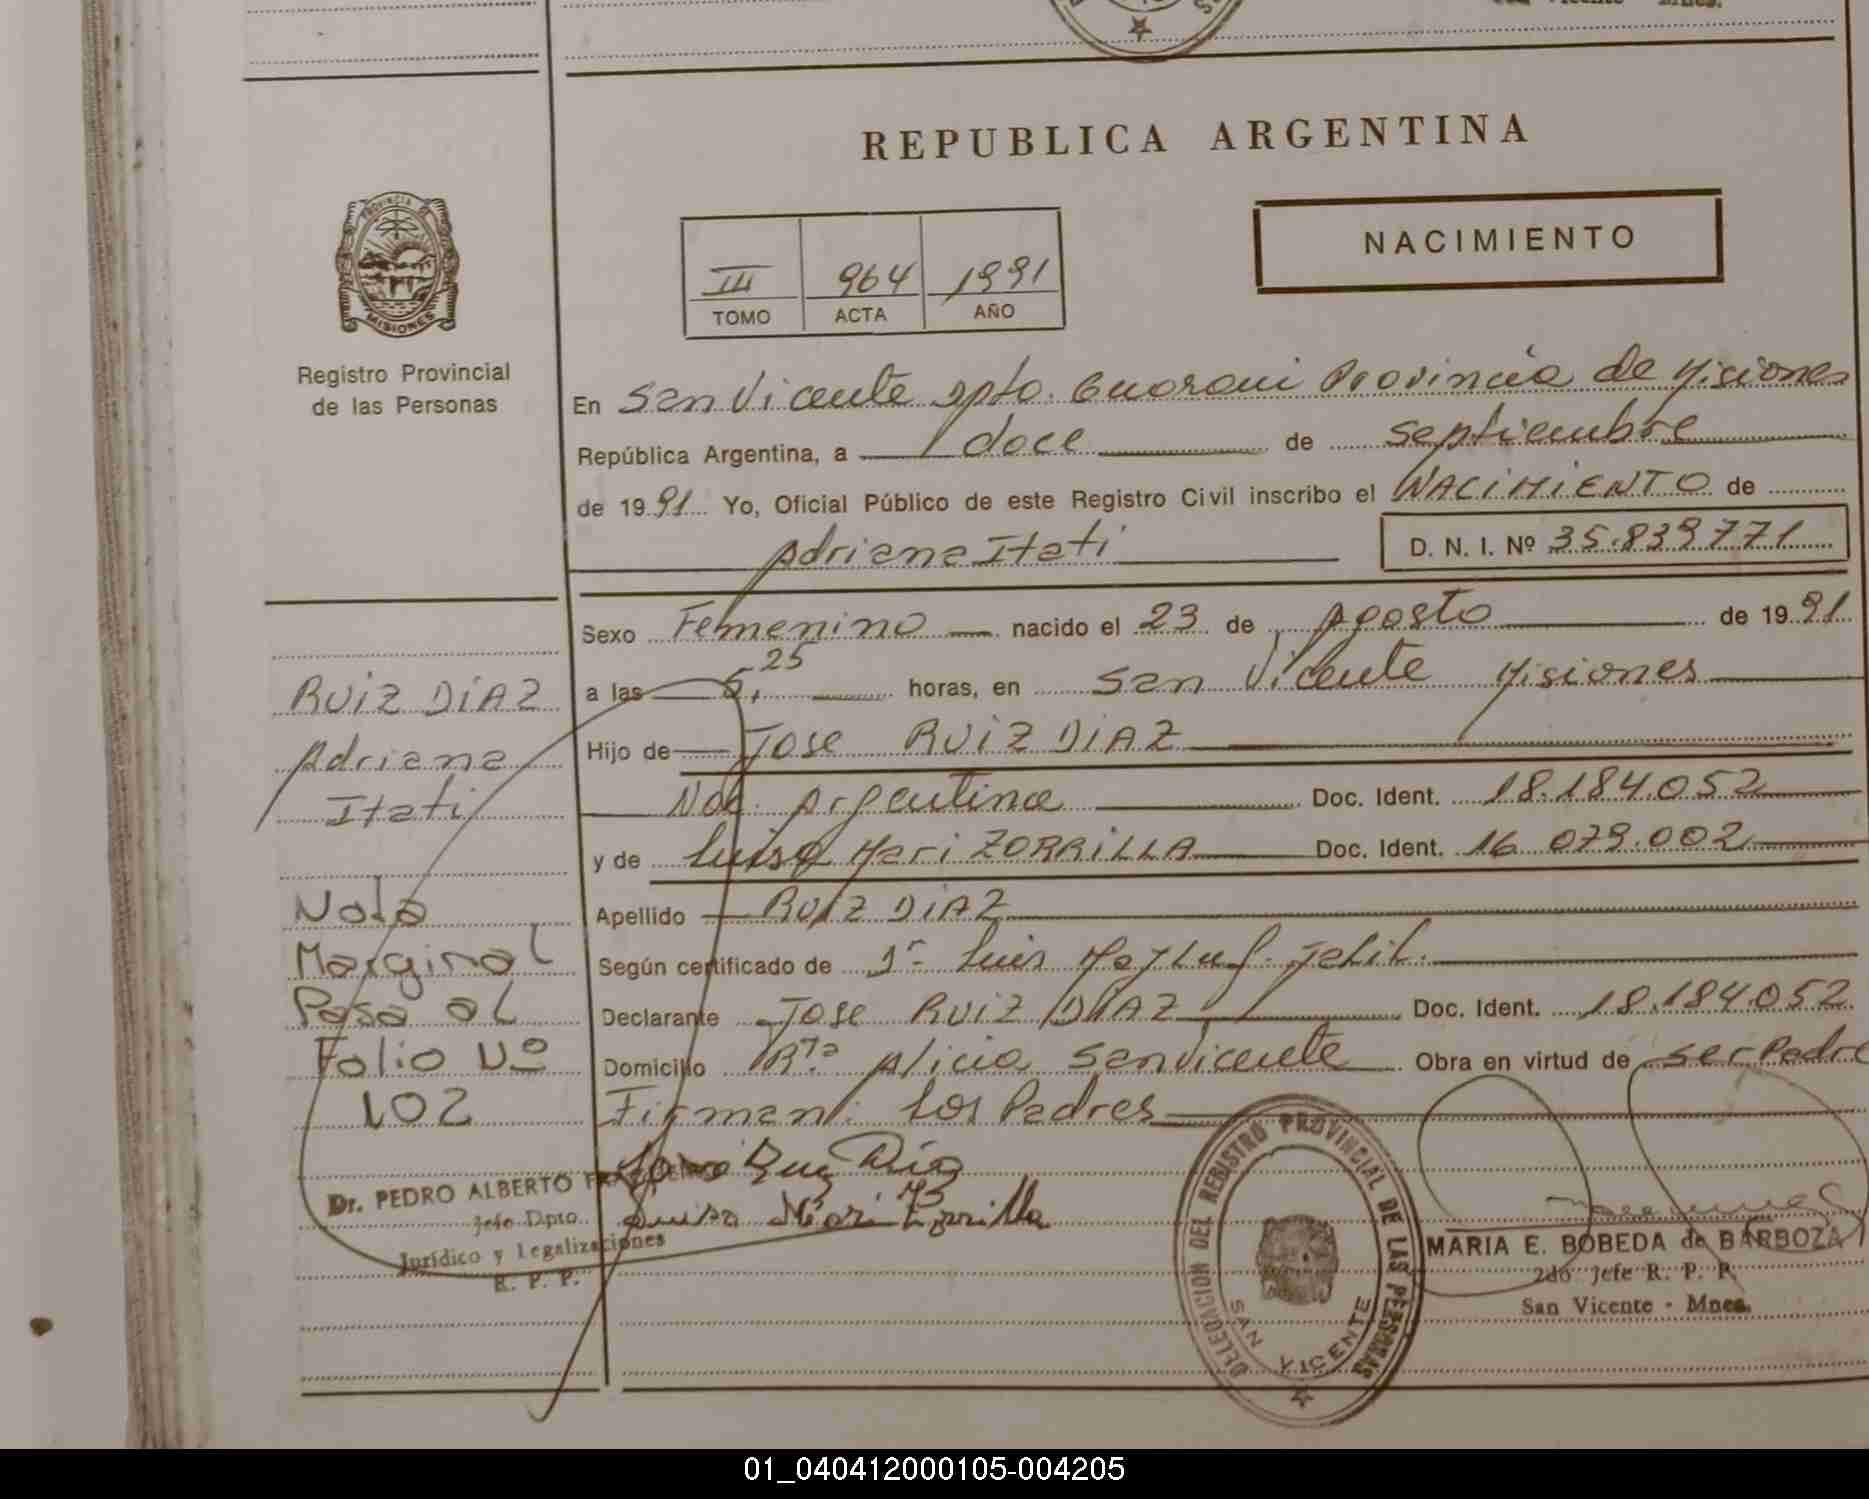 San Vicente - Mnes.
REPUBLICA ARGENTINA
PROVINCIA DE
MISIONES
Registro Provincial
de las Personas
III 964 1991
TOMO ACTA AÑO
NACIMIENTO
En San Vicente Dpto. Guarani Provincia de Misiones
República Argentina, a doce de septiembre
de 1991 Yo, Oficial Público de este Registro Civil inscribo el NACIMIENTO de
Adriana Itati D. N. I. Nº 35.839.771
Sexo Femenino nacido el 23 de Agosto de 1991
a las 6,25 horas, en San Vicente Misiones
Hijo de Jose RUIZ DIAZ
Nac. Argentina Doc. Ident. 18.184.052
y de Luisa Mari ZORRILLA Doc. Ident. 16 079.002
Apellido RUIZ DIAZ
Según certificado de Dr Luis
Declarante Jose RUIZ DIAZ Doc. Ident. 18.184.052
Domicilio Rta Alicia San Vicente Obra en virtud de ser Padre
Firman: Los Padres
RUIZ DIAZ
Adriana
Itati
Nota
Marginal
Pasa al
Folio Nº
102
Dr. PEDRO ALBERTO
Jefe Dpto.
Jurídico y Legalizaciones
R. P. P.
Jose Ruiz Diaz
Luisa Mari Zorrilla
DELEGACION DEL REGISTRO PROVINCIAL DE LAS PERSONAS
SAN VICENTE
MARIA E. BOBEDA de BARBOZA
2do Jefe R. P. P.
San Vicente - Mnes.
01_040412000105-004205